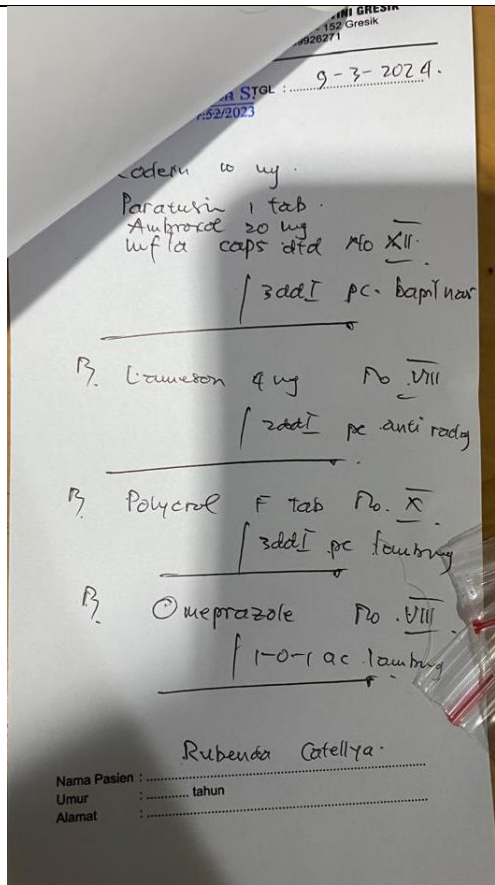 INI GRESIK
152 Gresik
9926271
TGL : 9-3-2024.
A S.
:52/2023
Codein 10 mg.
Paratusin 1 tab.
Ambroxol 20 mg
mf la caps dtd No XII.
∫ 3ddI pc. bapilnas
R. Lameson 4 mg No VIII
∫ 2ddI pc anti radag
R Polycrol F tab No. X
∫ 3ddI pc lambung
R Omeprazole No. VIII
∫ 1-0-1 ac lambung
Rubenda Catellya.
Nama Pasien :
Umur : tahun
Alamat :